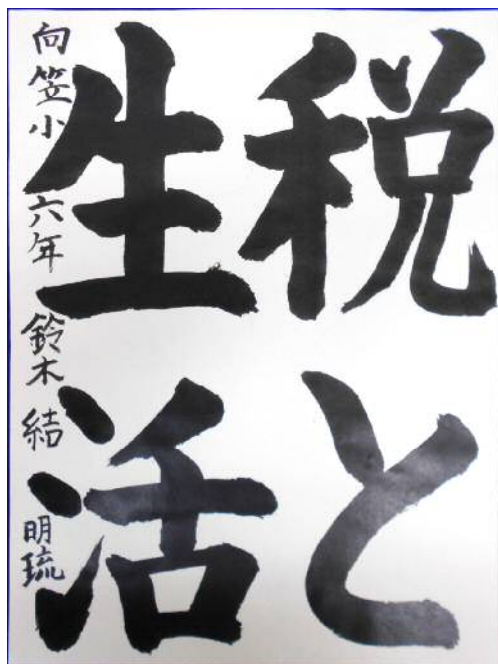 税と
生活
向笠小 六年 鈴木 結明琉